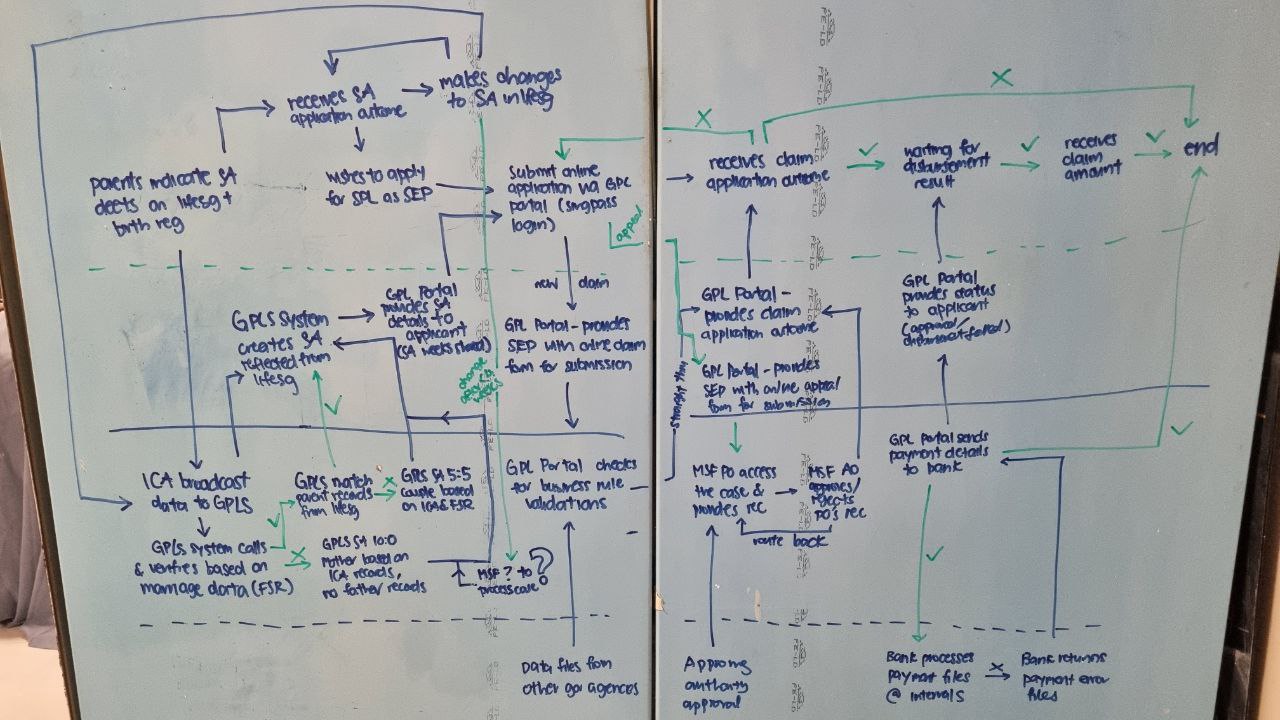 receives SA
application outcome
makes changes
to SA in lifesg
parents indicate SA
deets on lifesg +
birth reg
wishes to apply
for SPL as SEP
Submit online
application via GPL
portal (singpass
login)
appeal
new claim
GPLS system
creates SA
reflected from
lifesg
GPL Portal
provides SA
details to
applicant
(SA weeks shared)
change
GPL Portal - provides
SEP with online claim
form for submission
ICA broadcast
data to GPLS
GPLS match
parent records
from lifesg
GPLS SA 5:5
couple based
on ICA & FSR
GPL Portal checks
for business rule
validations
GPLS system calls
& verifies based on
marriage data (FSR)
GPLS SA 10:0
mother based on
ICA records,
no father records
MSF? to
process case?
?
Data files from
other gov agencies
receives claim
application outcome
waiting for
disbursement
result
receives
claim
amount
end
GPL Portal -
provides claim
application outcome
GPL Portal
provides status
to applicant
(approved/
disbursement failed)
GPL Portal - provides
SEP with online appeal
form for submission
straight thru
GPL Portal sends
payment details
to bank
MSF PO access
the case &
provides rec
MSF AO
approves/
rejects
PO's rec
route back
Approving
authority
approval
Bank processes
payment files
@ intervals
Bank returns
payment error
files